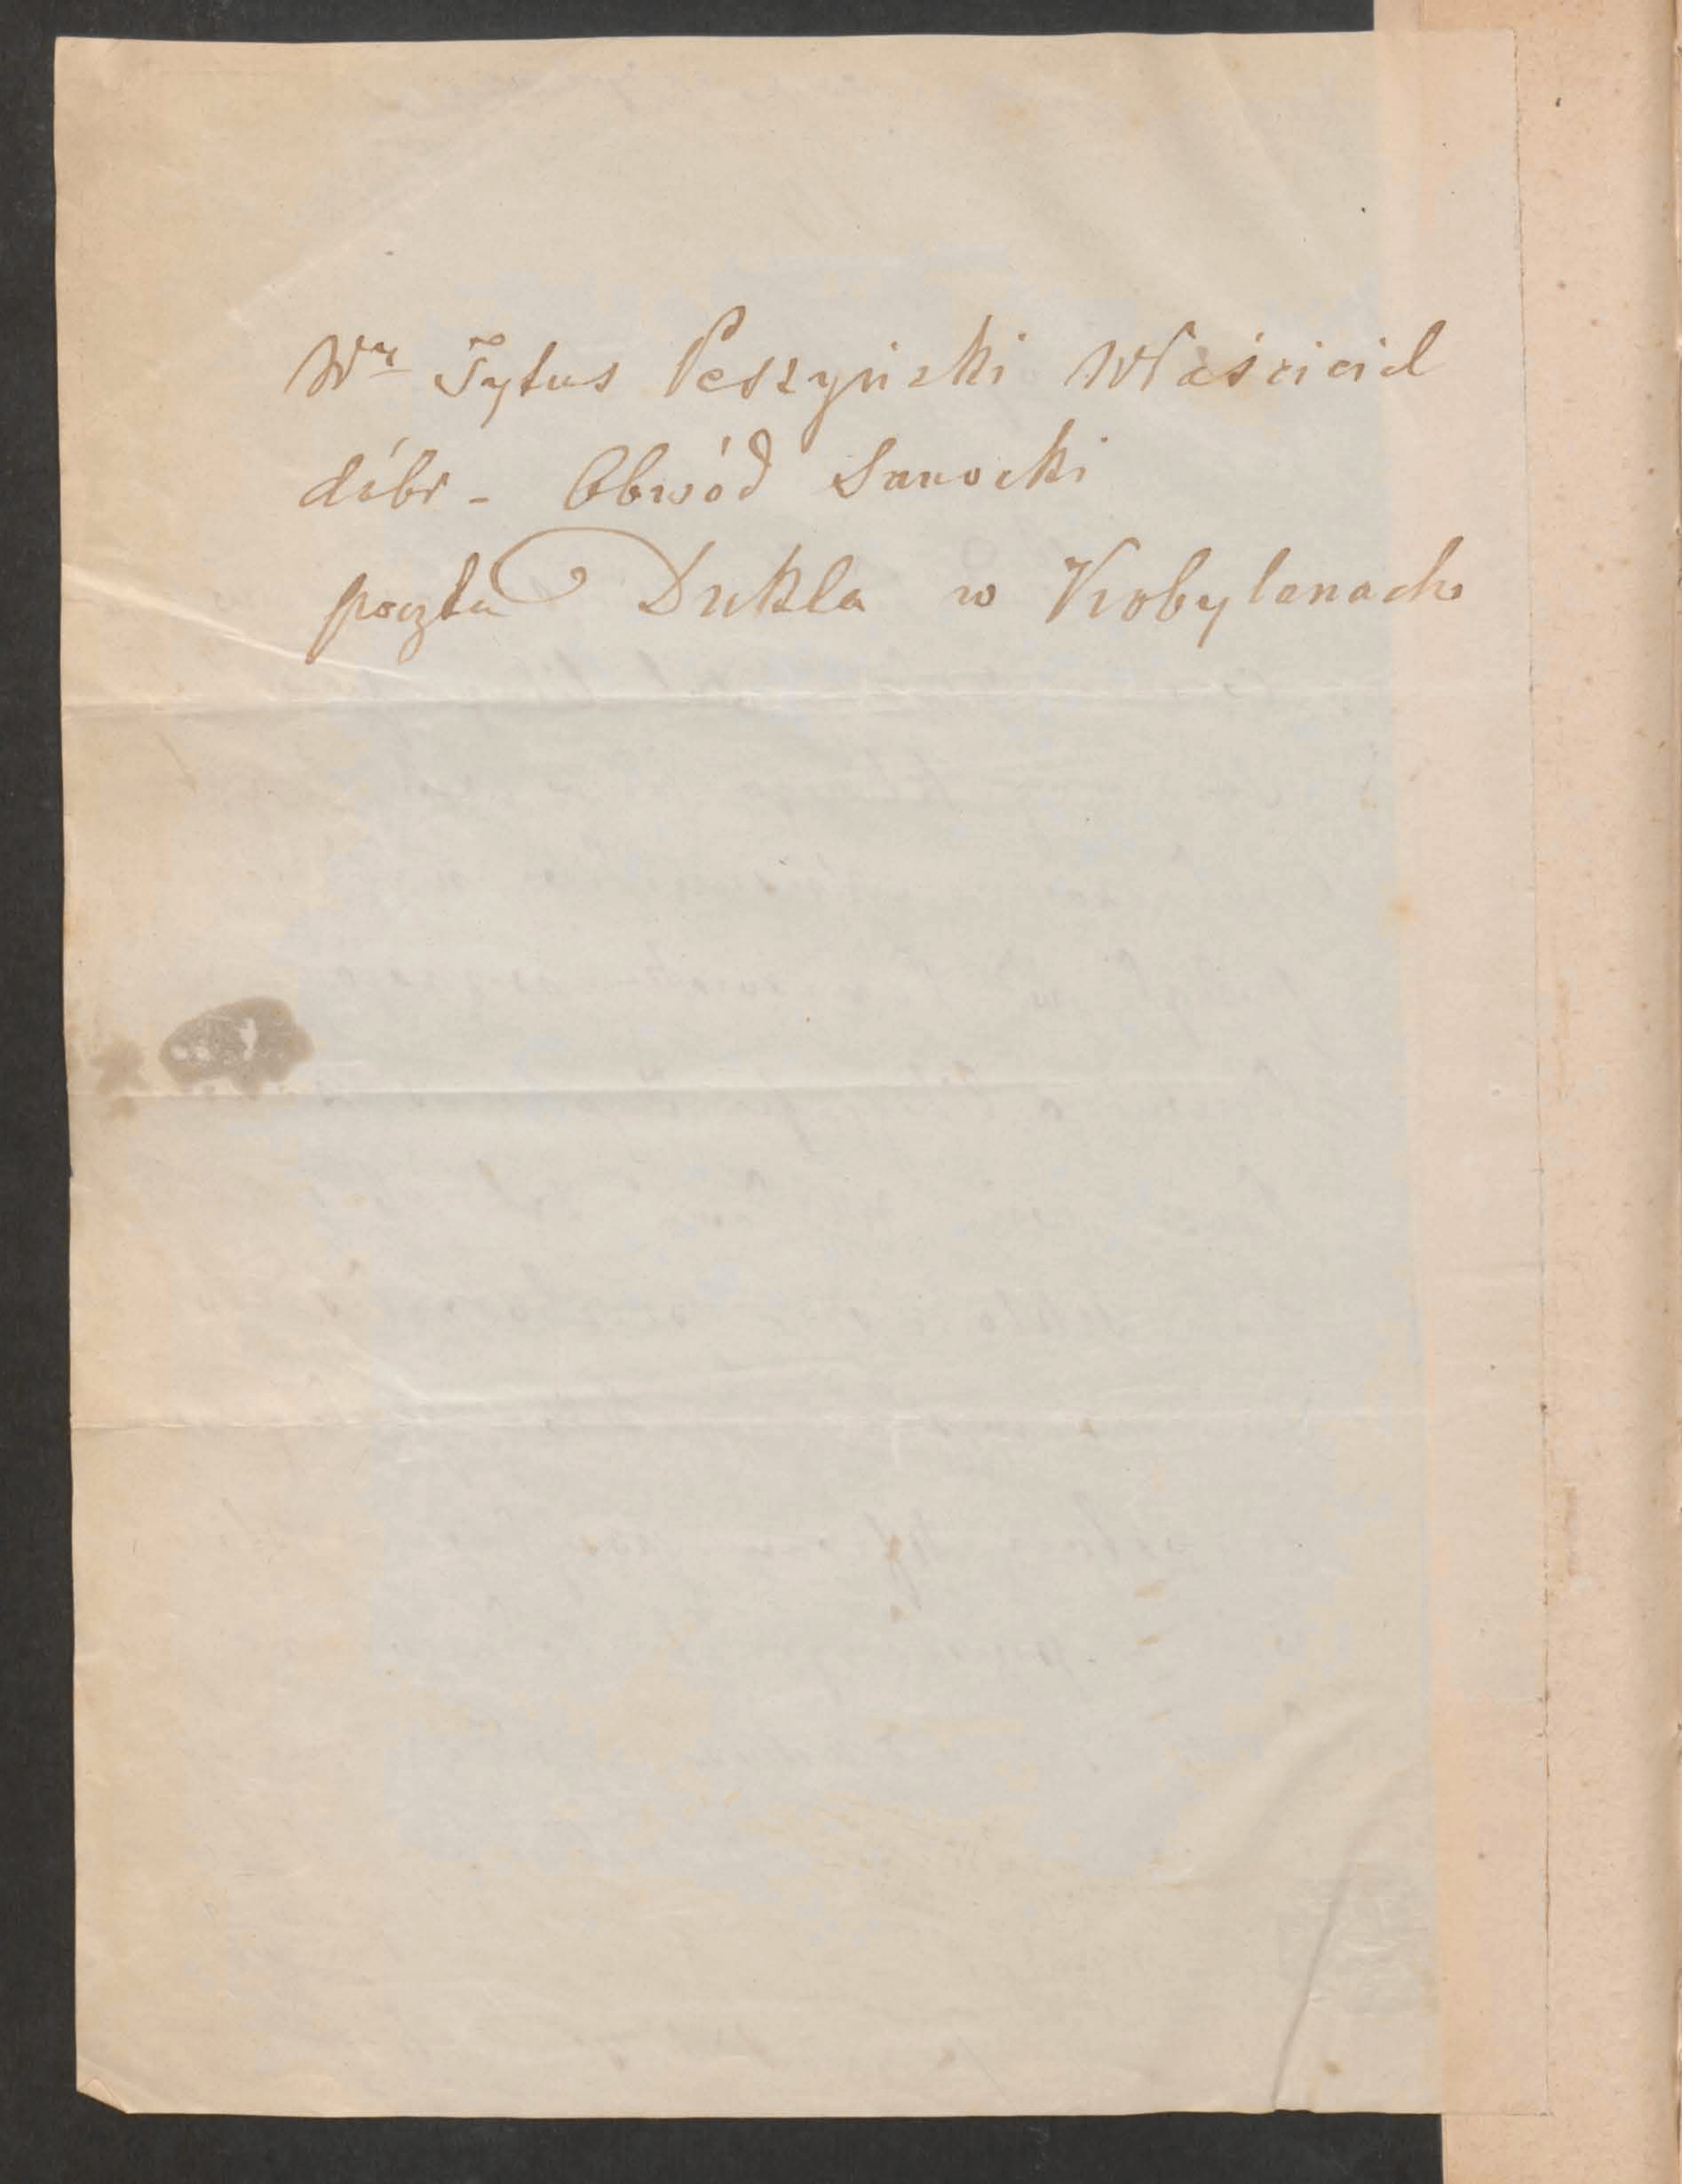 Wny Tytus Peszyński Właściciel
dóbr - Obwód Sanocki
poczta Dukla w Kobylanach